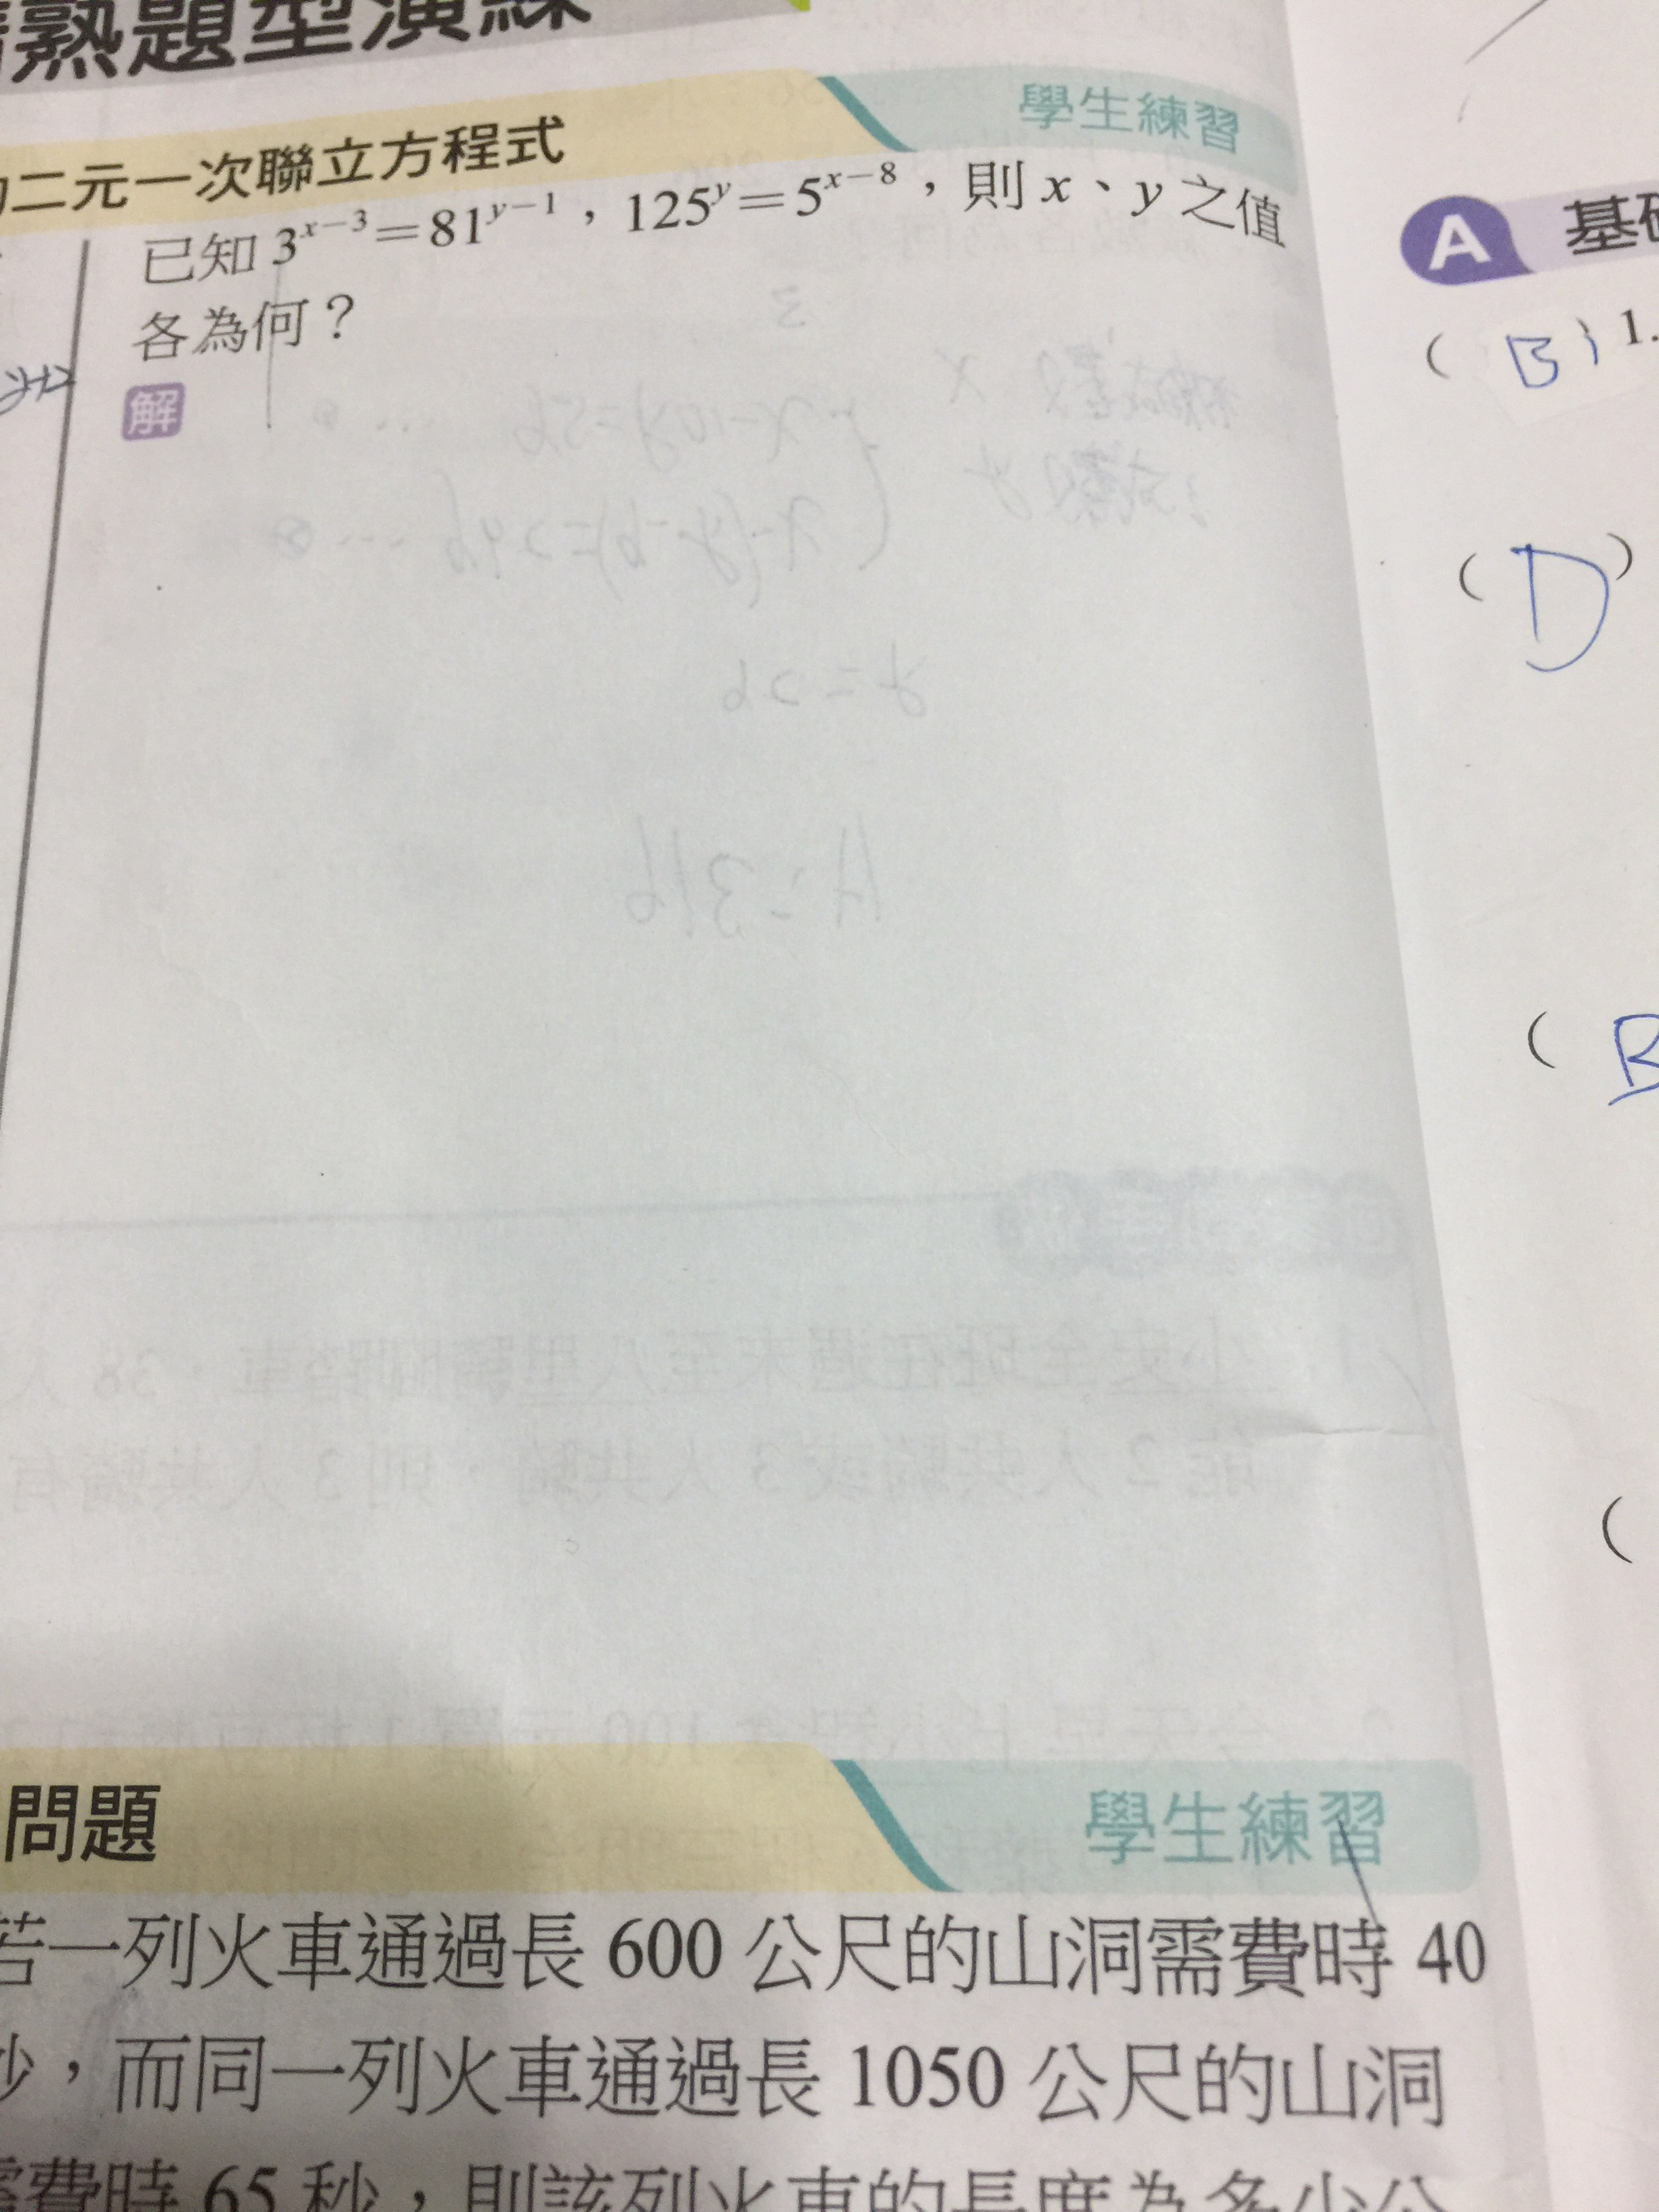 熟題型演練
二元一次聯立方程式
學生練習
已知 3^{x-3}=81^{y-1}，125^y=5^{x-8}，則 x、y 之值
各為何？
解
A 基
( B ) 1.
( D )
( B
(
問題
學生練習
若一列火車通過長 600 公尺的山洞需費時 40
秒，而同一列火車通過長 1050 公尺的山洞
需費時 65 秒，則該列火車的長度為多少公